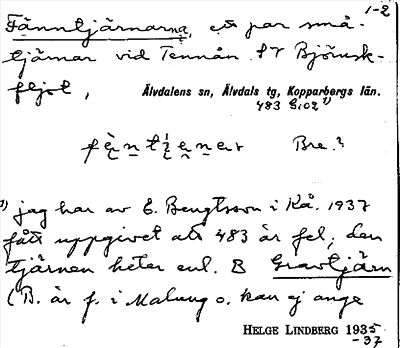 1-2
Fänntjärnarna, ett par små-
tjärnar vid Tennån. SV Björnsk-
fljot,
Älvdalens sn, Älvdals tg, Kopparbergs län.
483 G;02 1)
Bre.?
1) jag har av E. Bengtsson i Kå. 1937
fått uppgivet att 483 är fel; den
tjärnen heter enl. B Gravtjärn
(B. är f. i Malung o. kan ej ange
HELGE LINDBERG 1935
-37